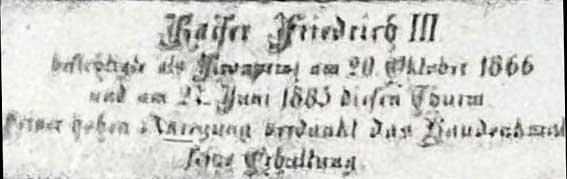 Kaiser Friedrich III
besichtigte als Kronprinz am 20. Oktober 1866
und am 22. Juni 1885 diesen Thurm
Seiner hohen Anregung verdankt das Baudenkmal
seine Erhaltung.